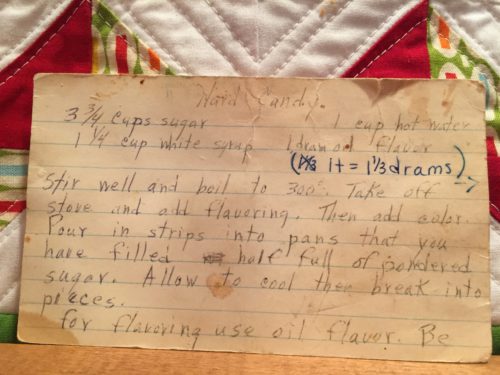 Hard Candy.
3 3/4 cups sugar 1 cup hot water
1 1/4 cup white syrup 1 dram oil flavor
( 1t = 1 1/3 drams) →
Stir well and boil to 300°. Take off
stove and add flavoring. Then add color.
Pour in strips into pans that you
have filled half full of powdered
sugar. Allow to cool then break into
pieces.
for flavoring use oil flavor. Be